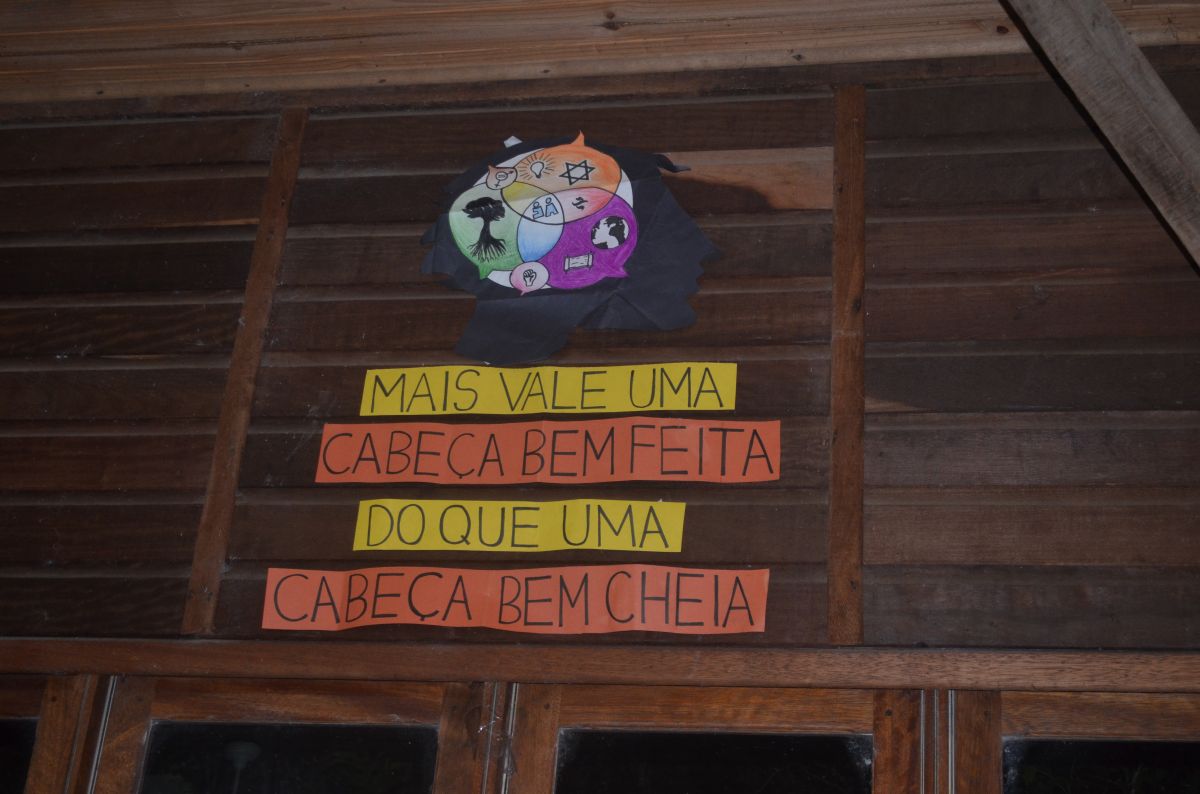 MAIS VALE UMA
CABEÇA BEM FEITA
DO QUE UMA
CABEÇA BEM CHEIA